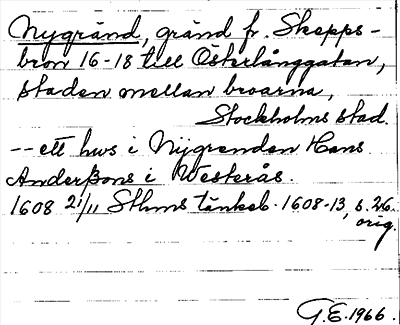 Nygränd, gränd fr. Skepps-
bron 16-18 till Österlånggatan,
staden mellan broarna,
Stockholms stad.
-- ett hws i Nÿgrenden Hans
Anderßons i Westerås.
1608 21/11 Sthms tänkeb. 1608-13, s. 26.
orig.
G.E. 1966.